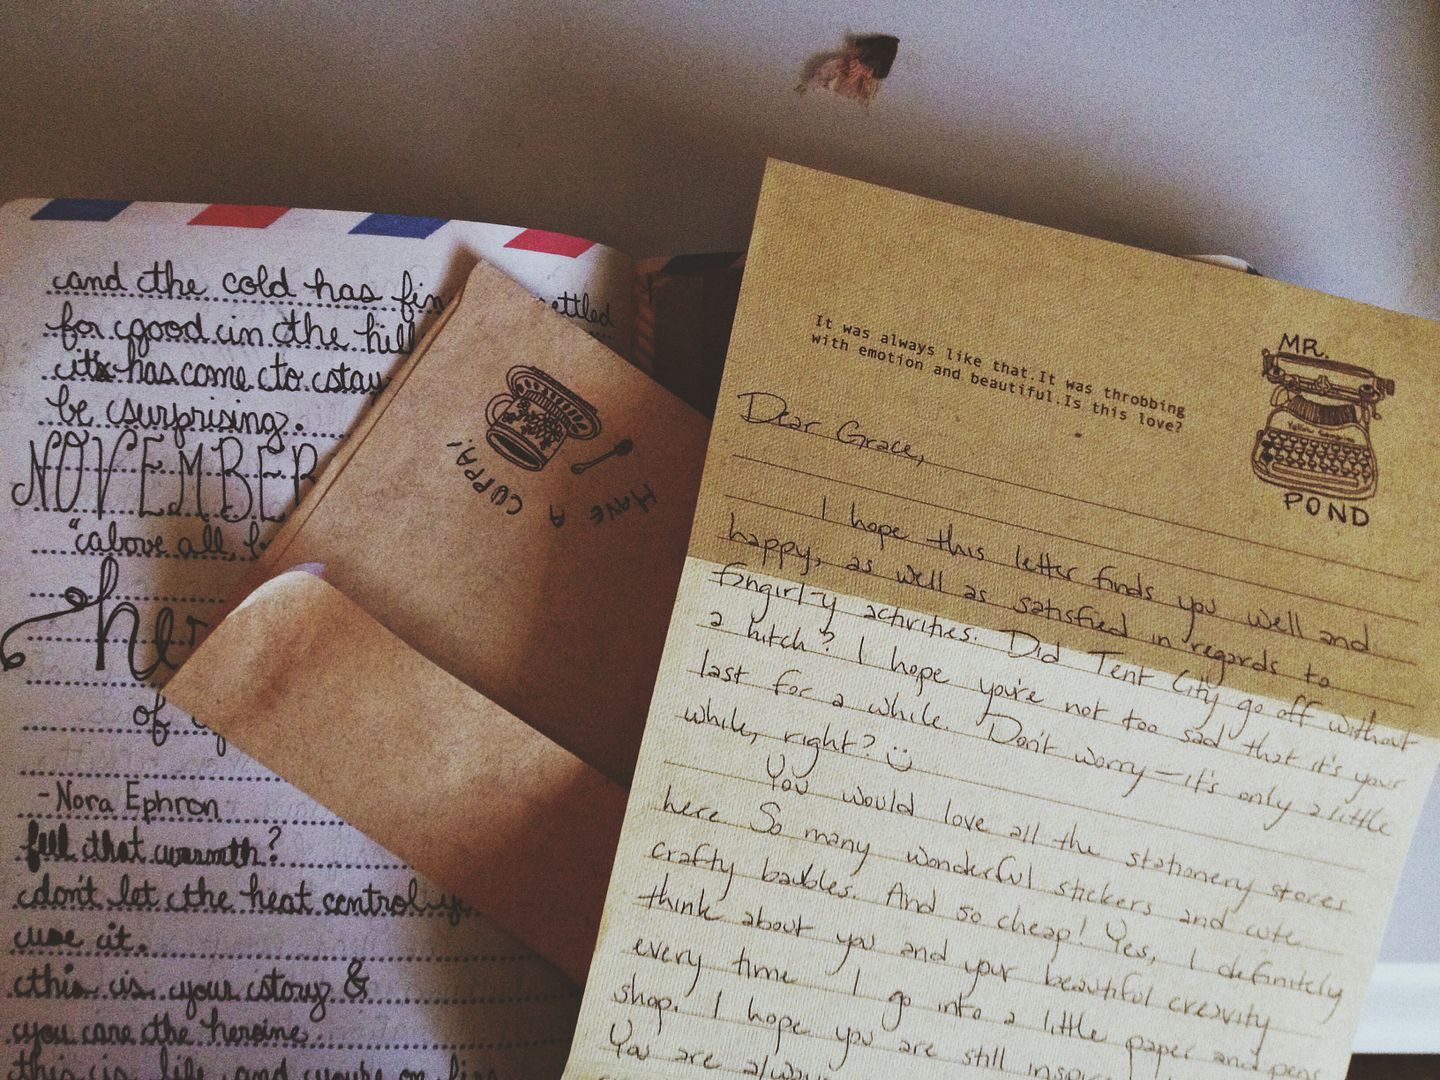 and the cold has fin ettled
for good in the hill
it has come to stay
be surprising.
NOVEMBER
"above all, b
her
of
-Nora Ephron
feel that warmth?
don't let the heat control y
use it.
this is your story &
you are the heroine.
this is life and you're on fire
HAVE A CUPPA!
It was always like that.It was throbbing
with emotion and beautiful.Is this love?
MR.
POND
Dear Grace,
I hope this letter finds you well and
happy, as well as satisfied in regards to
fangirl-y activities. Did Tent City go off without
a hitch? I hope you're not too sad that it's your
last for a while. Don't worry—it's only a little
while, right? ☺
You would love all the stationery stores
here. So many wonderful stickers and cute
crafty baubles. And so cheap! Yes, I definitely
think about you and your beautiful creativity
every time I go into a little paper and pens
shop. I hope you are still inspi
You are alwa